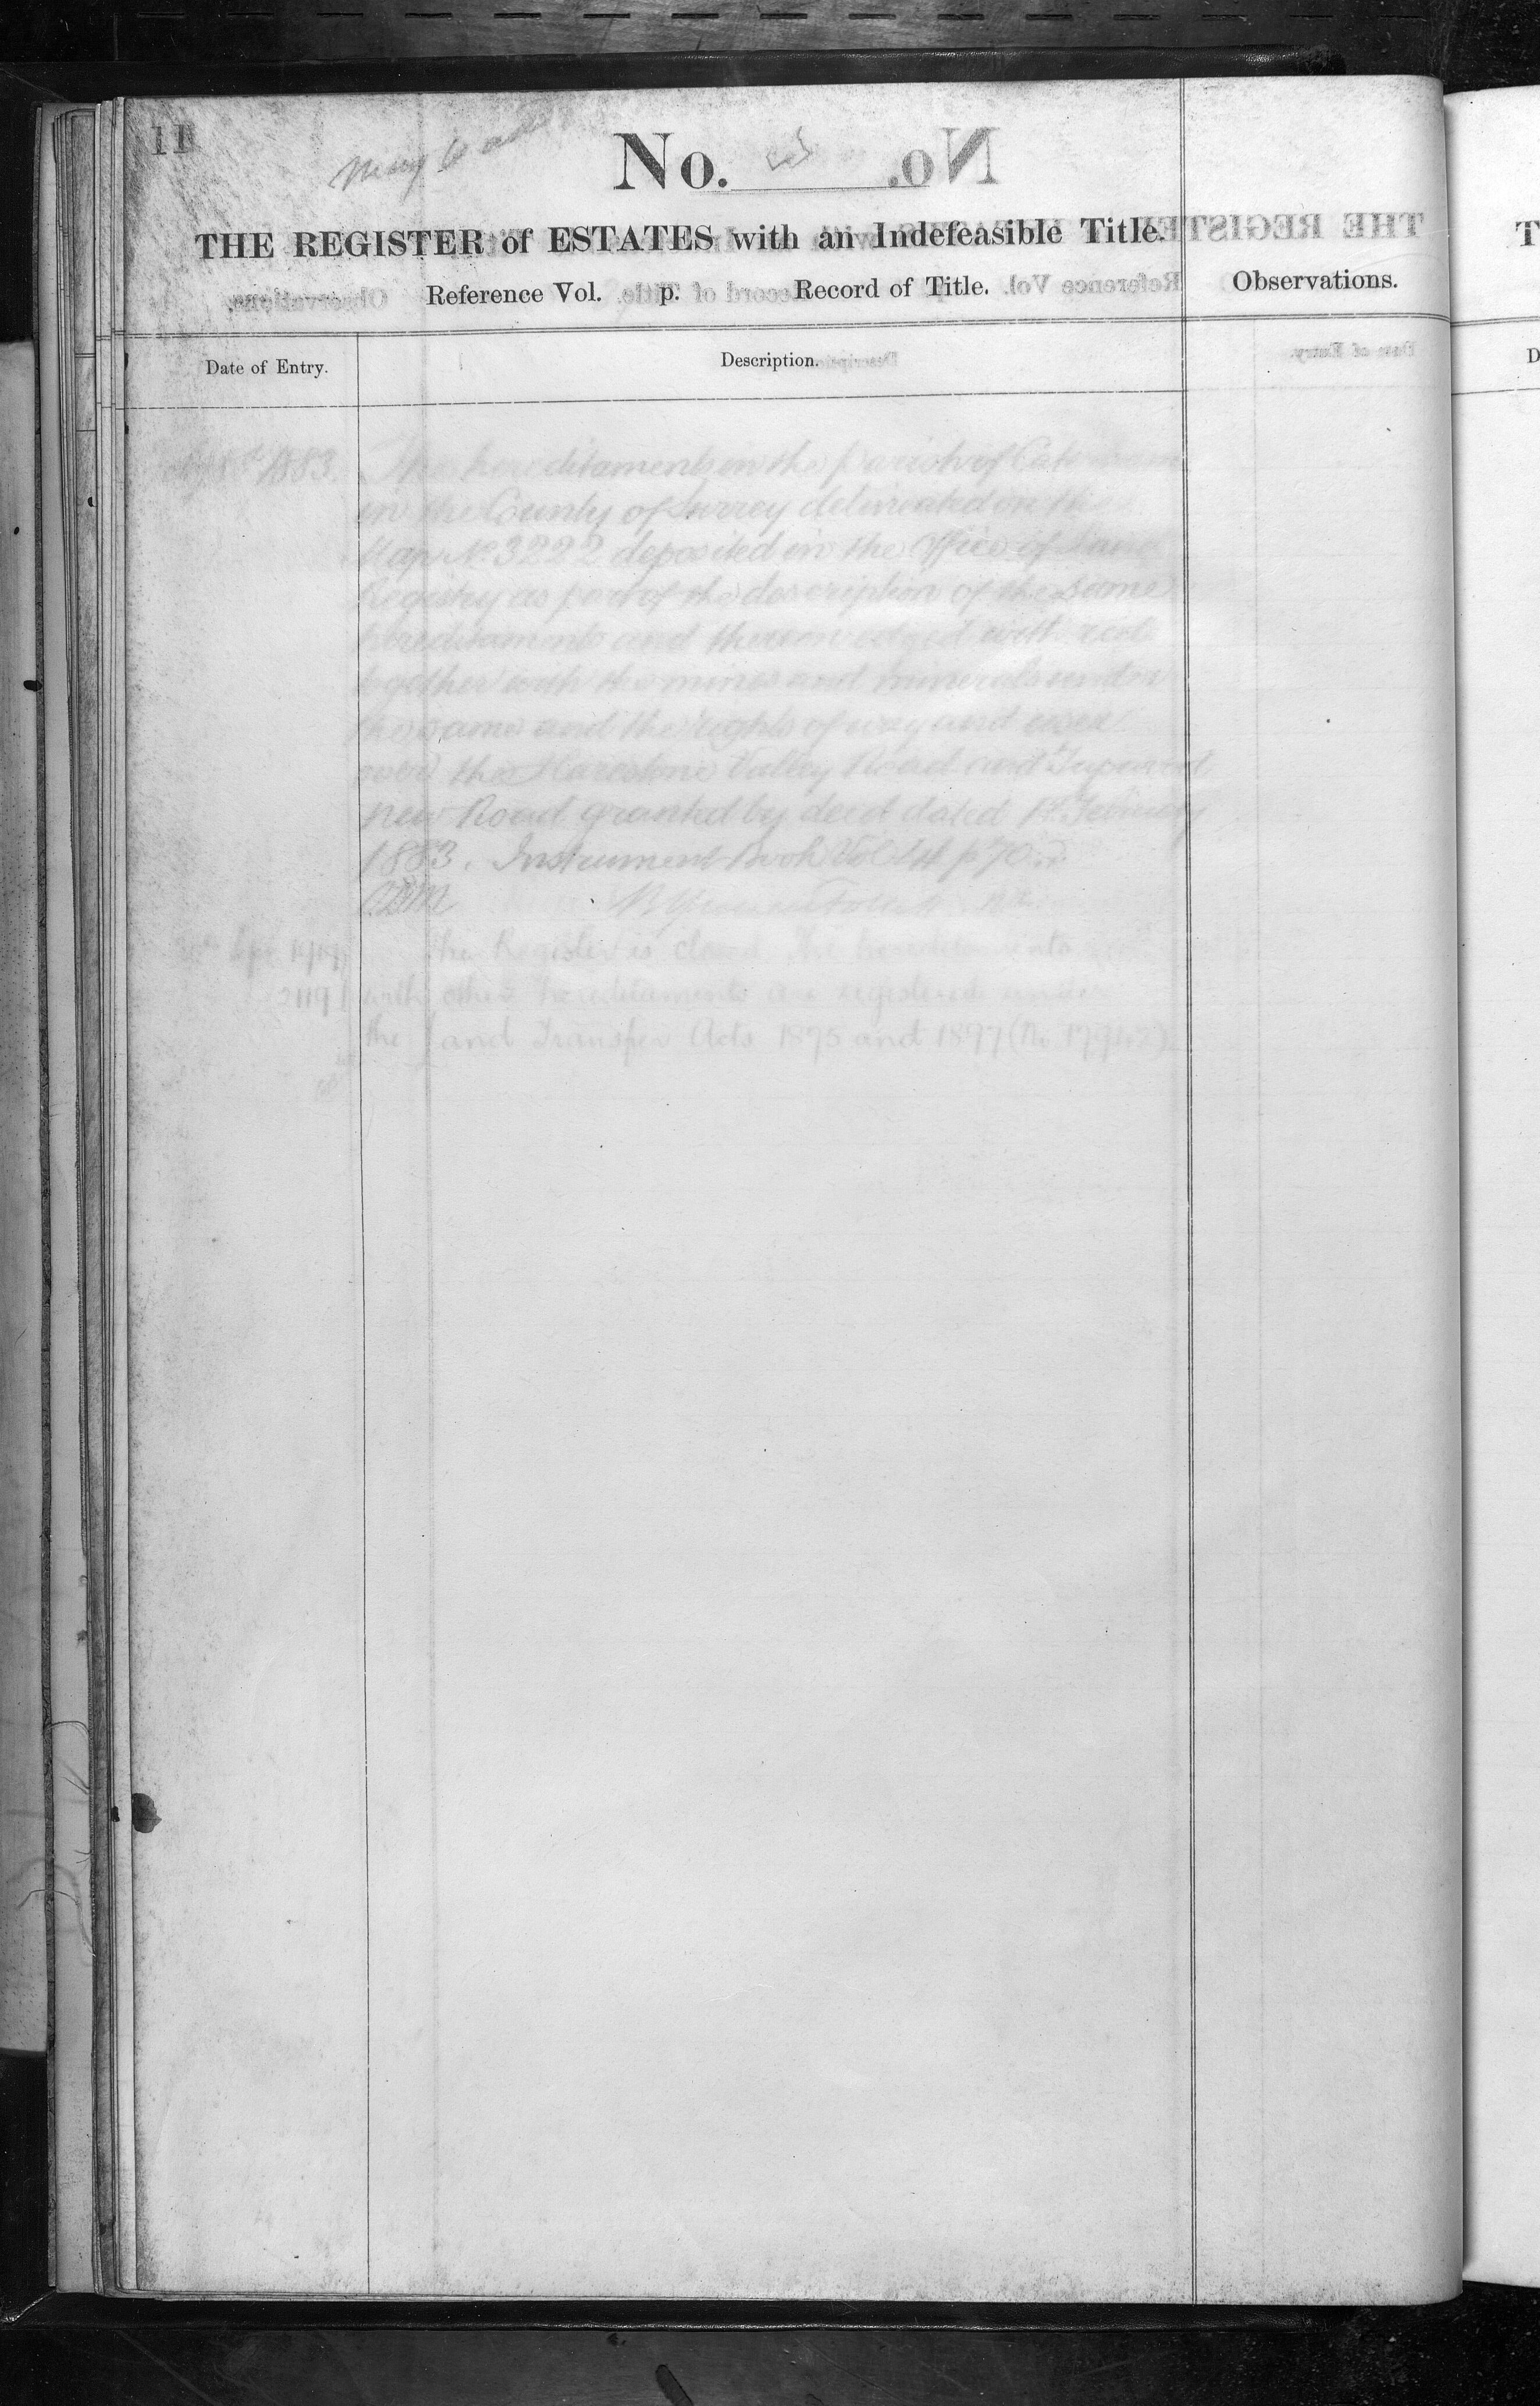 11
No.
THE REGISTER of ESTATES with an Indefeasible Title.
Reference Vol. p. Record of Title.
Observations.
Date of Entry.
Description.
1883. The hereditaments in the parish of
in the County of Surrey delineated on the
Map No. 3222 deposited in the Office of Land
Registry as part of the description of the same
hereditaments and thereon edged with red
together with the mines and minerals under
the same and the rights of way and
over the Harestone Valley Road and
new Road granted by deed dated 1st February
1883. Instrument Book Vol 14 p 70
The Register is closed. The hereditaments
with other hereditaments are registered under
the Land Transfer Acts 1875 and 1897 (No